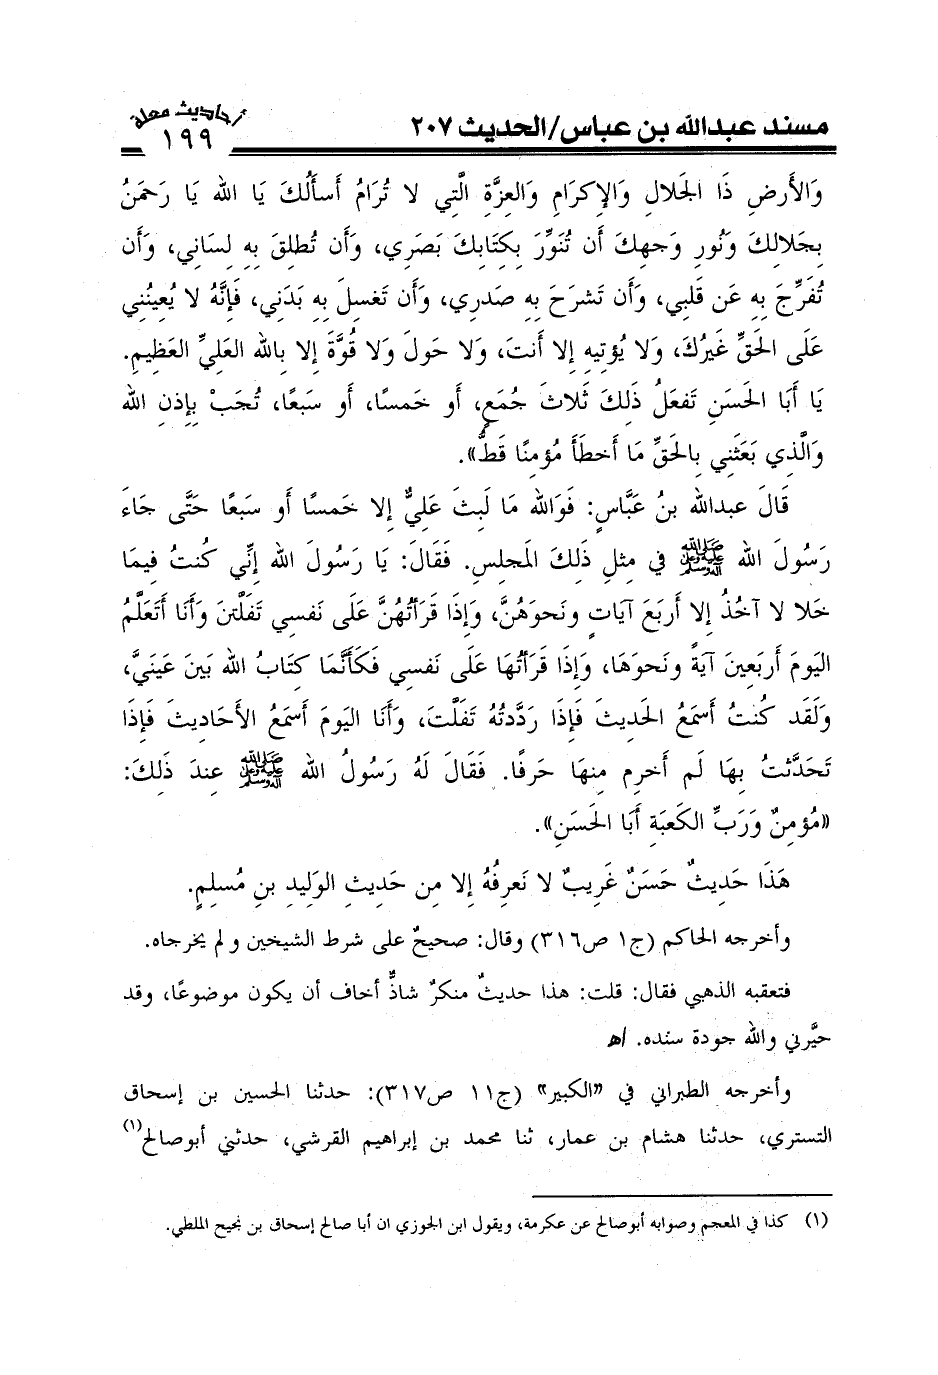 مسند عبدالله بن عباس/الحديث ٢٠٧
أحاديث معلة
١٩٩
وَالأَرضِ ذَا الجَلالِ وَالإِكرَامِ وَالعِزَّةِ الَّتِي لا تُرَامُ أَسأَلُكَ يَا الله يَا رَحمَنُ
بِجَلالِكَ وَنُورِ وَجهِكَ أَن تُنَوِّرَ بِكِتَابِكَ بَصَرِي، وَأَن تُطلِقَ بِهِ لِسَانِي، وَأَن
تُفَرِّجَ بِهِ عَن قَلبِي، وَأَن تَشرَحَ بِهِ صَدرِي، وَأَن تَغسِلَ بِهِ بَدَنِي، فَإِنَّهُ لا يُعِينُنِي
عَلَى الحَقِّ غَيرُكَ، وَلا يُؤتِيهِ إلا أَنتَ، وَلا حَولَ وَلا قُوَّةَ إلا بِالله العَلِيِّ العَظِيمِ.
يَا أَبَا الحَسَنِ تَفعَلُ ذَلِكَ ثَلاثَ جُمَعٍ، أَو خَمسًا، أَو سَبعًا، تُجَبْ بِإِذنِ الله
وَالَّذِي بَعَثَنِي بِالحَقِّ مَا أَخطَأَ مُؤمِنًا قَطُّ».
قَالَ عبدالله بنُ عَبَّاسٍ: فَوَالله مَا لَبِثَ عَلِيٌّ إلا خَمسًا أَو سَبعًا حَتَّى جَاءَ
رَسُولَ الله ﷺ فِي مِثلِ ذَلِكَ المَجلِسِ. فَقَالَ: يَا رَسُولَ الله إِنِّي كُنتُ فِيمَا
خَلا لا آخُذُ إلا أَربَعَ آيَاتٍ ونَحوَهُنَّ، وَإِذَا قَرَأتُهُنَّ عَلَى نَفسِي تَفَلَّتنَ وَأَنَا أَتَعَلَّمُ
اليَومَ أَربَعِينَ آيَةً ونَحوَهَا، وَإِذَا قَرَأتُهَا عَلَى نَفسِي فَكَأَنَّمَا كِتَابُ الله بَينَ عَينَيَّ،
وَلَقَد كُنتُ أَسمَعُ الحَدِيثَ فَإِذَا رَدَّدتُهُ تَفَلَّتَ، وَأَنَا اليَومَ أَسمَعُ الأَحَادِيثَ فَإِذَا
تَحَدَّثتُ بِهَا لَم أَخرِم مِنهَا حَرفًا. فَقَالَ لَهُ رَسُولُ الله ﷺ عِندَ ذَلِكَ:
«مُؤمِنٌ وَرَبِّ الكَعبَةِ أَبَا الحَسَنِ».
هَذَا حَدِيثٌ حَسَنٌ غَرِيبٌ لا نَعرِفُهُ إلا مِن حَدِيثِ الوَلِيدِ بنِ مُسلِمٍ.
وأخرجه الحاكم (ج١ ص٣١٦) وقال: صحيحٌ على شرط الشيخين و لم يخرجاه.
فتعقبه الذهبي فقال: قلت: هذا حديثٌ منكرٌ شاذٌّ أخاف أن يكون موضوعًا، وقد
حيَّرني والله جودة سنده. اهـ
وأخرجه الطبراني في «الكبير» (ج١١ ص٣١٧): حدثنا الحسين بن إسحاق
التستري، حدثنا هشام بن عمار، ثنا محمد بن إبراهيم القرشي، حدثني أبوصالح(١)
(١) كذا في المعجم وصوابه أبوصالح عن عكرمة، ويقول ابن الجوزي ان أبا صالح إسحاق بن نجيح الملطي.